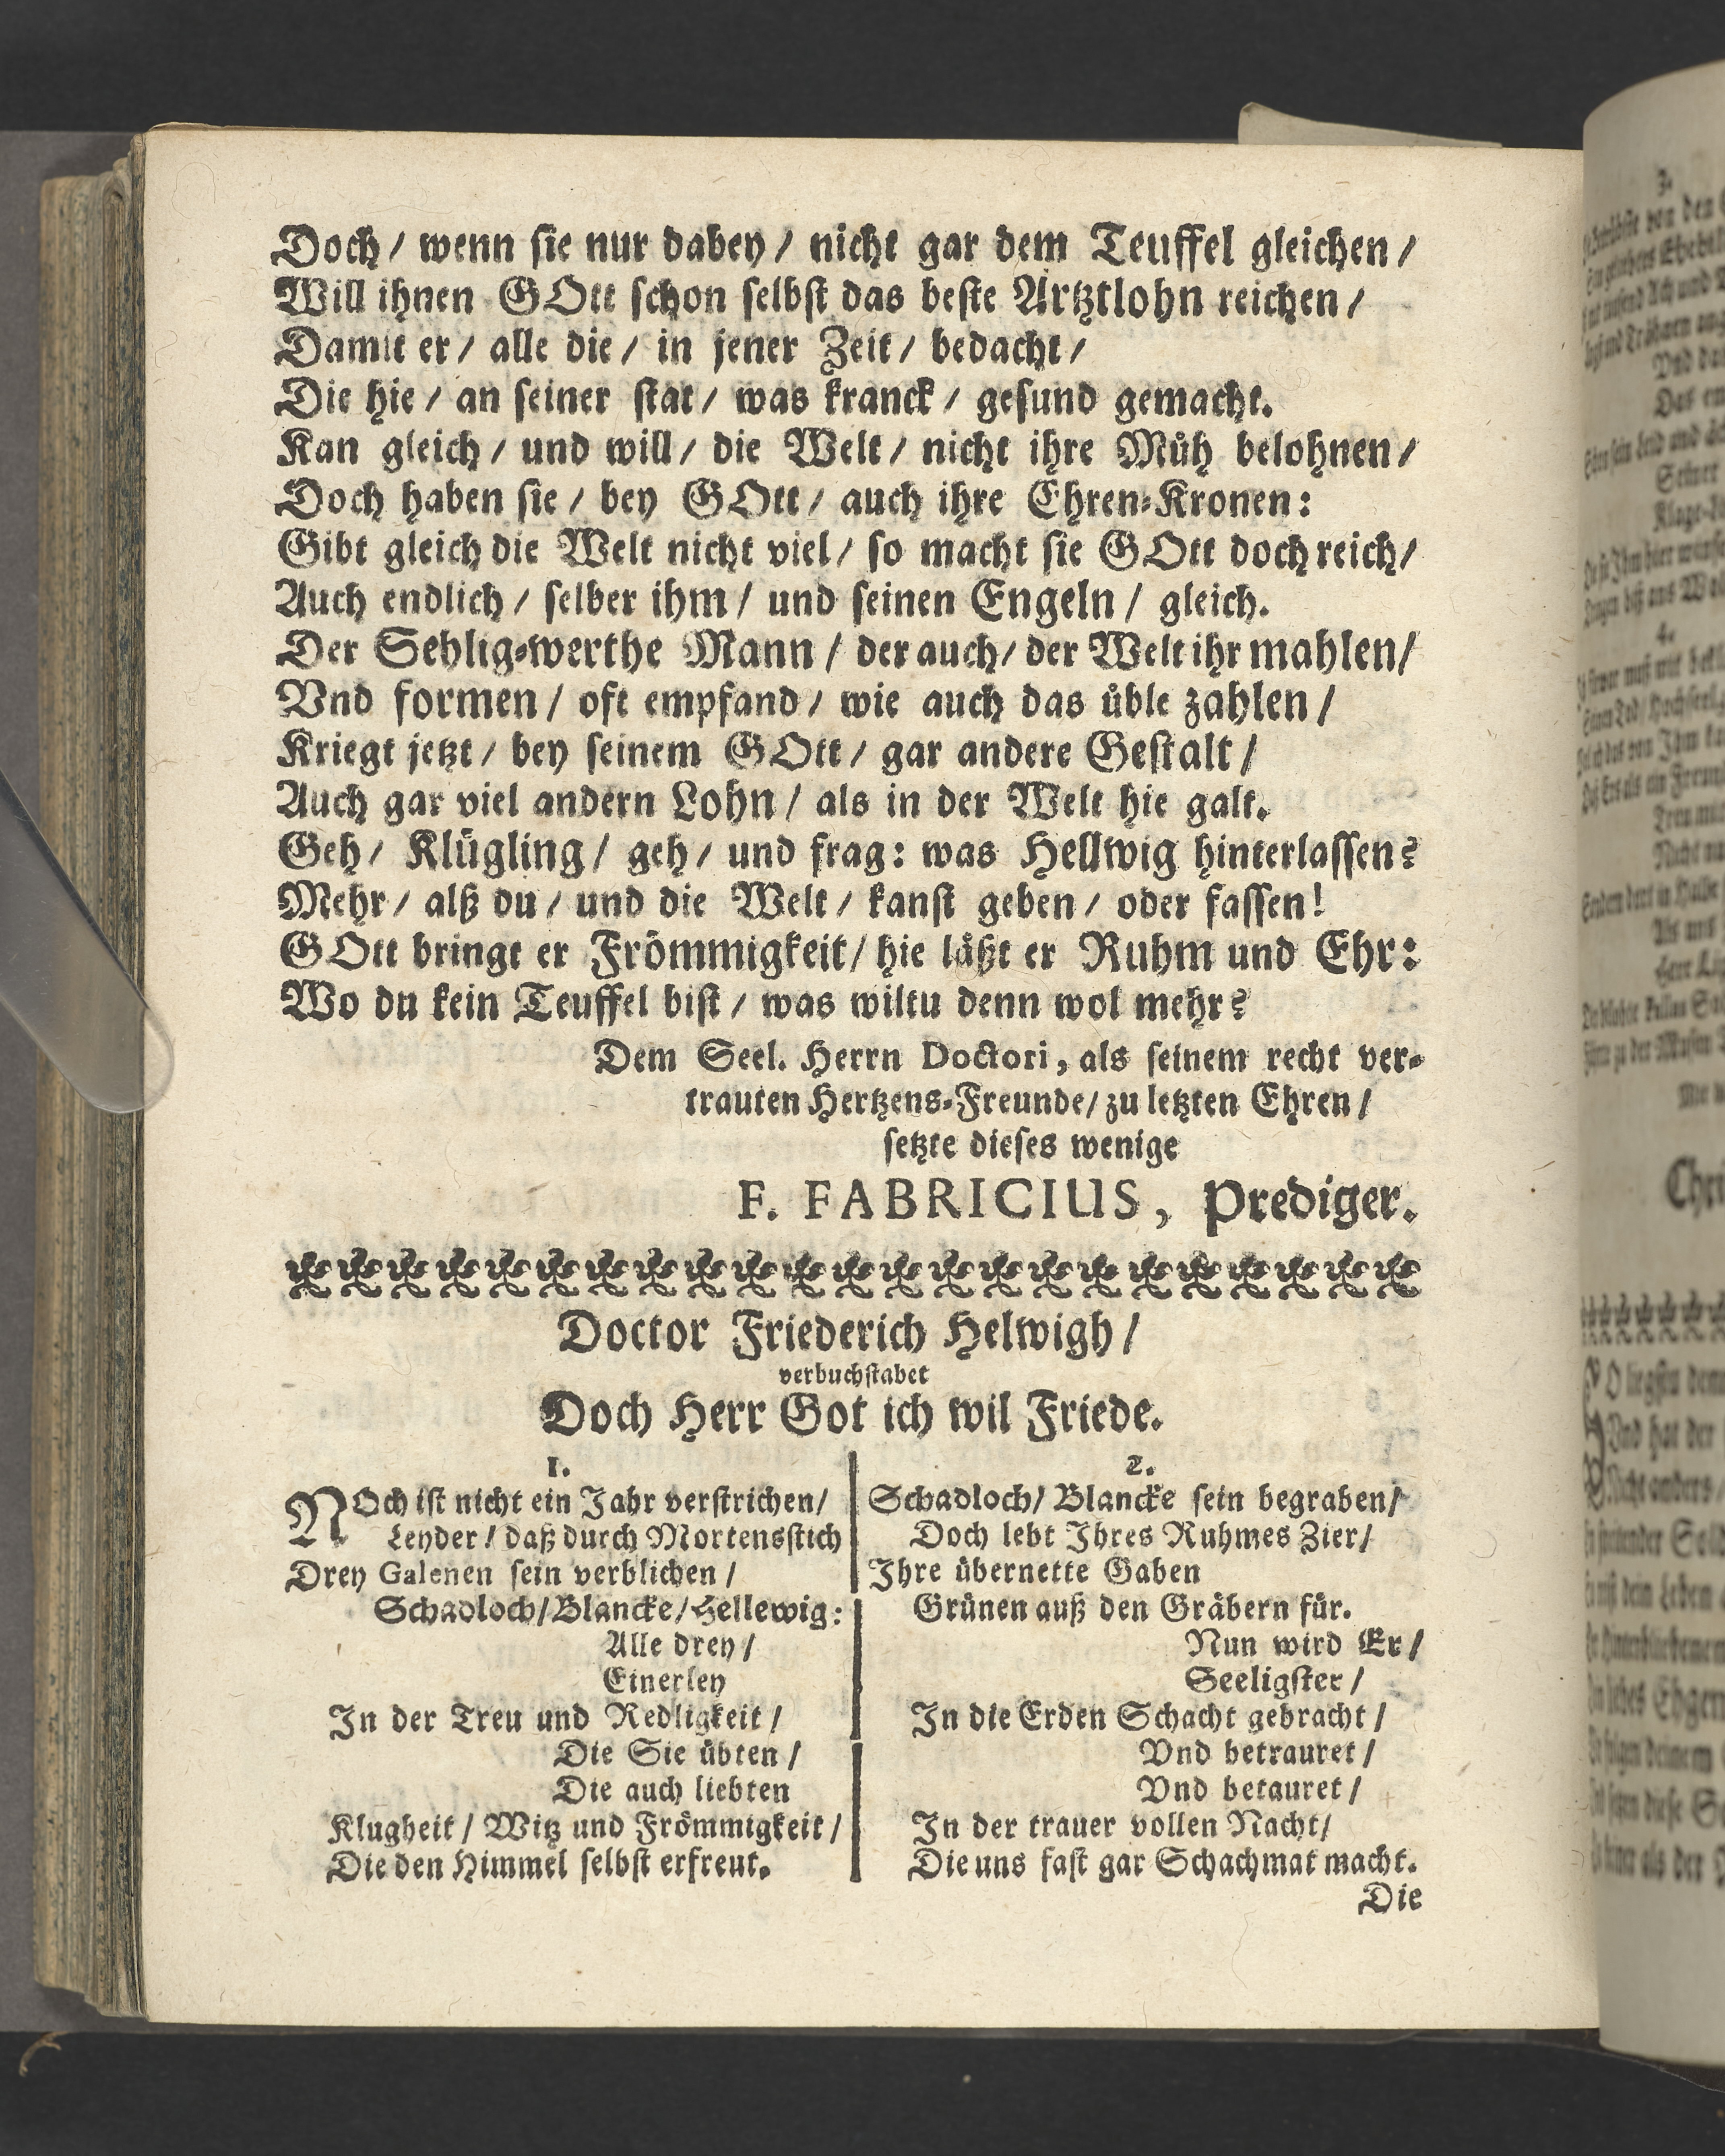 Doch / wenn sie nur dabey / nicht gar dem Teuffel gleichen /
Will ihnen GOtt schon selbst das beste Artztlohn reichen /
Damit er / alle die / in jener Zeit / bedacht /
Die hie / an seiner stat / was kranck / gesund gemacht.
Kan gleich / und will / die Welt / nicht ihre Müh belohnen /
Doch haben sie / bey GOtt / auch ihre Ehren-Kronen:
Gibt gleich die Welt nicht viel / so macht sie GOtt doch reich /
Auch endlich / selber ihm / und seinen Engeln / gleich.
Der Sehlig-werthe Mann / der auch / der Welt ihr mahlen /
Vnd formen / oft empfand / wie auch das üble zahlen /
Kriegt jetzt / bey seinem GOtt / gar andere Gestalt /
Auch gar viel andern Lohn / als in der Welt hie galt.
Geh / Klügling / geh / und frag: was Hellwig hinterlassen?
Mehr / alß du / und die Welt / kanst geben / oder fassen!
GOtt bringt er Frömmigkeit / hie läßt er Ruhm und Ehr:
Wo du kein Teuffel bist / was wiltu denn wol mehr?
Dem Seel. Herrn Doctori, als seinem recht ver-
trauten Hertzens-Freunde / zu letzten Ehren /
setzte dieses wenige
F. FABRICIUS, Prediger.
Doctor Friederich Helwigh /
verbuchstabet
Doch Herr Got ich wil Friede.
1.
NOch ist nicht ein Jahr verstrichen /
Leyder / daß durch Mortensstich
Drey Galenen sein verblichen /
Schadloch / Blancke / Hellewig:
Alle drey /
Einerley
In der Treu und Redligkeit /
Die Sie übten /
Die auch liebten
Klugheit / Witz und Frömmigkeit /
Die den Himmel selbst erfreut.
2.
Schadloch / Blancke sein begraben /
Doch lebt Ihres Ruhmes Zier /
Ihre übernette Gaben
Grünen auß den Gräbern für.
Nun wird Er /
Seeligster /
In die Erden Schacht gebracht /
Vnd betrauret /
Vnd betauret /
In der trauer vollen Nacht /
Die uns fast gar Schachmat macht.
Die